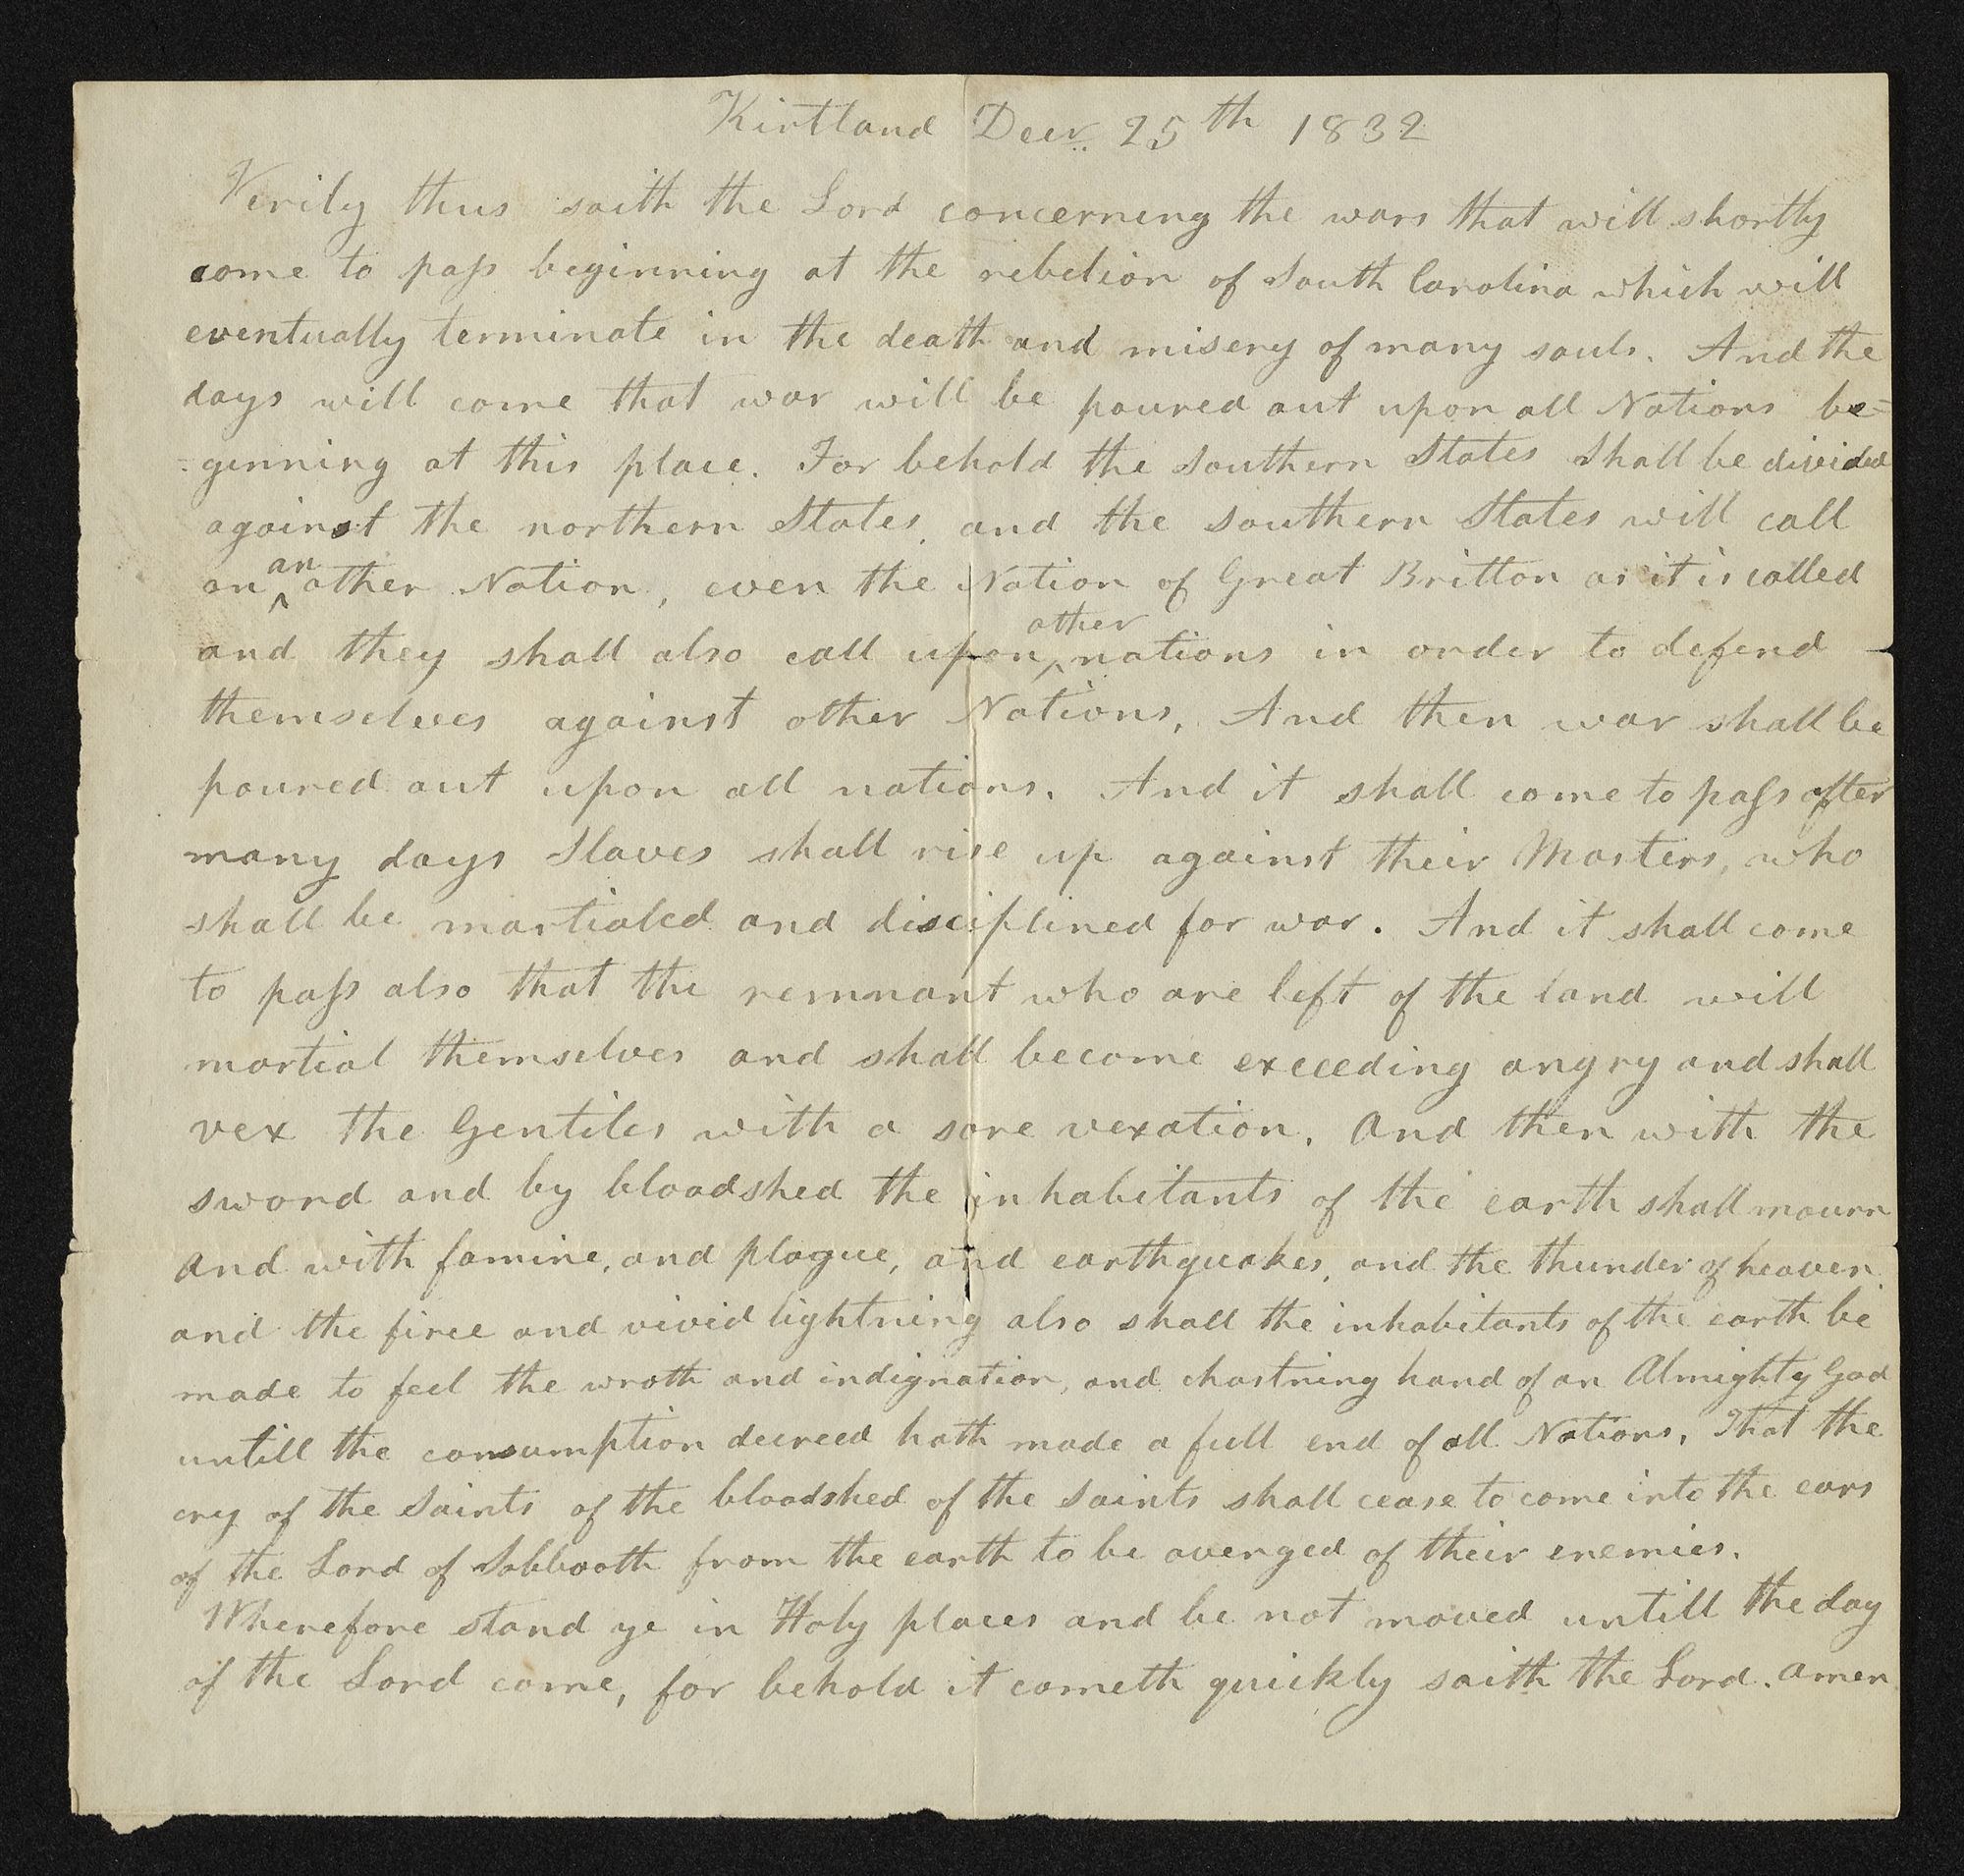 Kirtland Decr. 25th 1832
Verily thus saith the Lord concerning the wars that will shortly
come to pass beginning at the rebelion of South Carolina which will
eventually terminate in the death and misery of many souls. And the
days will come that war will be poured out upon all Nations be=
=ginning at this place. For behold the Southern States Shall be divided
against the northern States, and the Southern States will call
on an other Nation, even the Nation of Great Britton as it is called
and they shall also call upon other nations in order to defend
themselves against other Nations. And then war shall be
poured out upon all nations. And it shall come to pass after
many days Slaves shall rise up against their Masters, who
shall be martialed and disciplined for war. And it shall come
to pass also that the remnant who are left of the land will
martial themselves and shall become exceeding angry and shall
vex the Gentiles with a sore vexation. And then with the
sword and by bloodshed the inhabitants of the earth shall mourn
And with famine, and plague, and earthquakes, and the thunder of heaven,
and the firee and vivid lightning also shall the inhabitants of the earth be
made to feel the wrath and indignation, and chastning hand of an Almighty God
untill the consumption decreed hath made a full end of all Nations, That the
cry of the Saints of the bloodshed of the Saints shall cease to come into the ears
of the Lord of Sabbaoth from the earth to be avenged of their enemies.
Wherefore stand ye in Holy places and be not moved untill the day
of the Lord come, for behold it cometh quickly saith the Lord. Amen